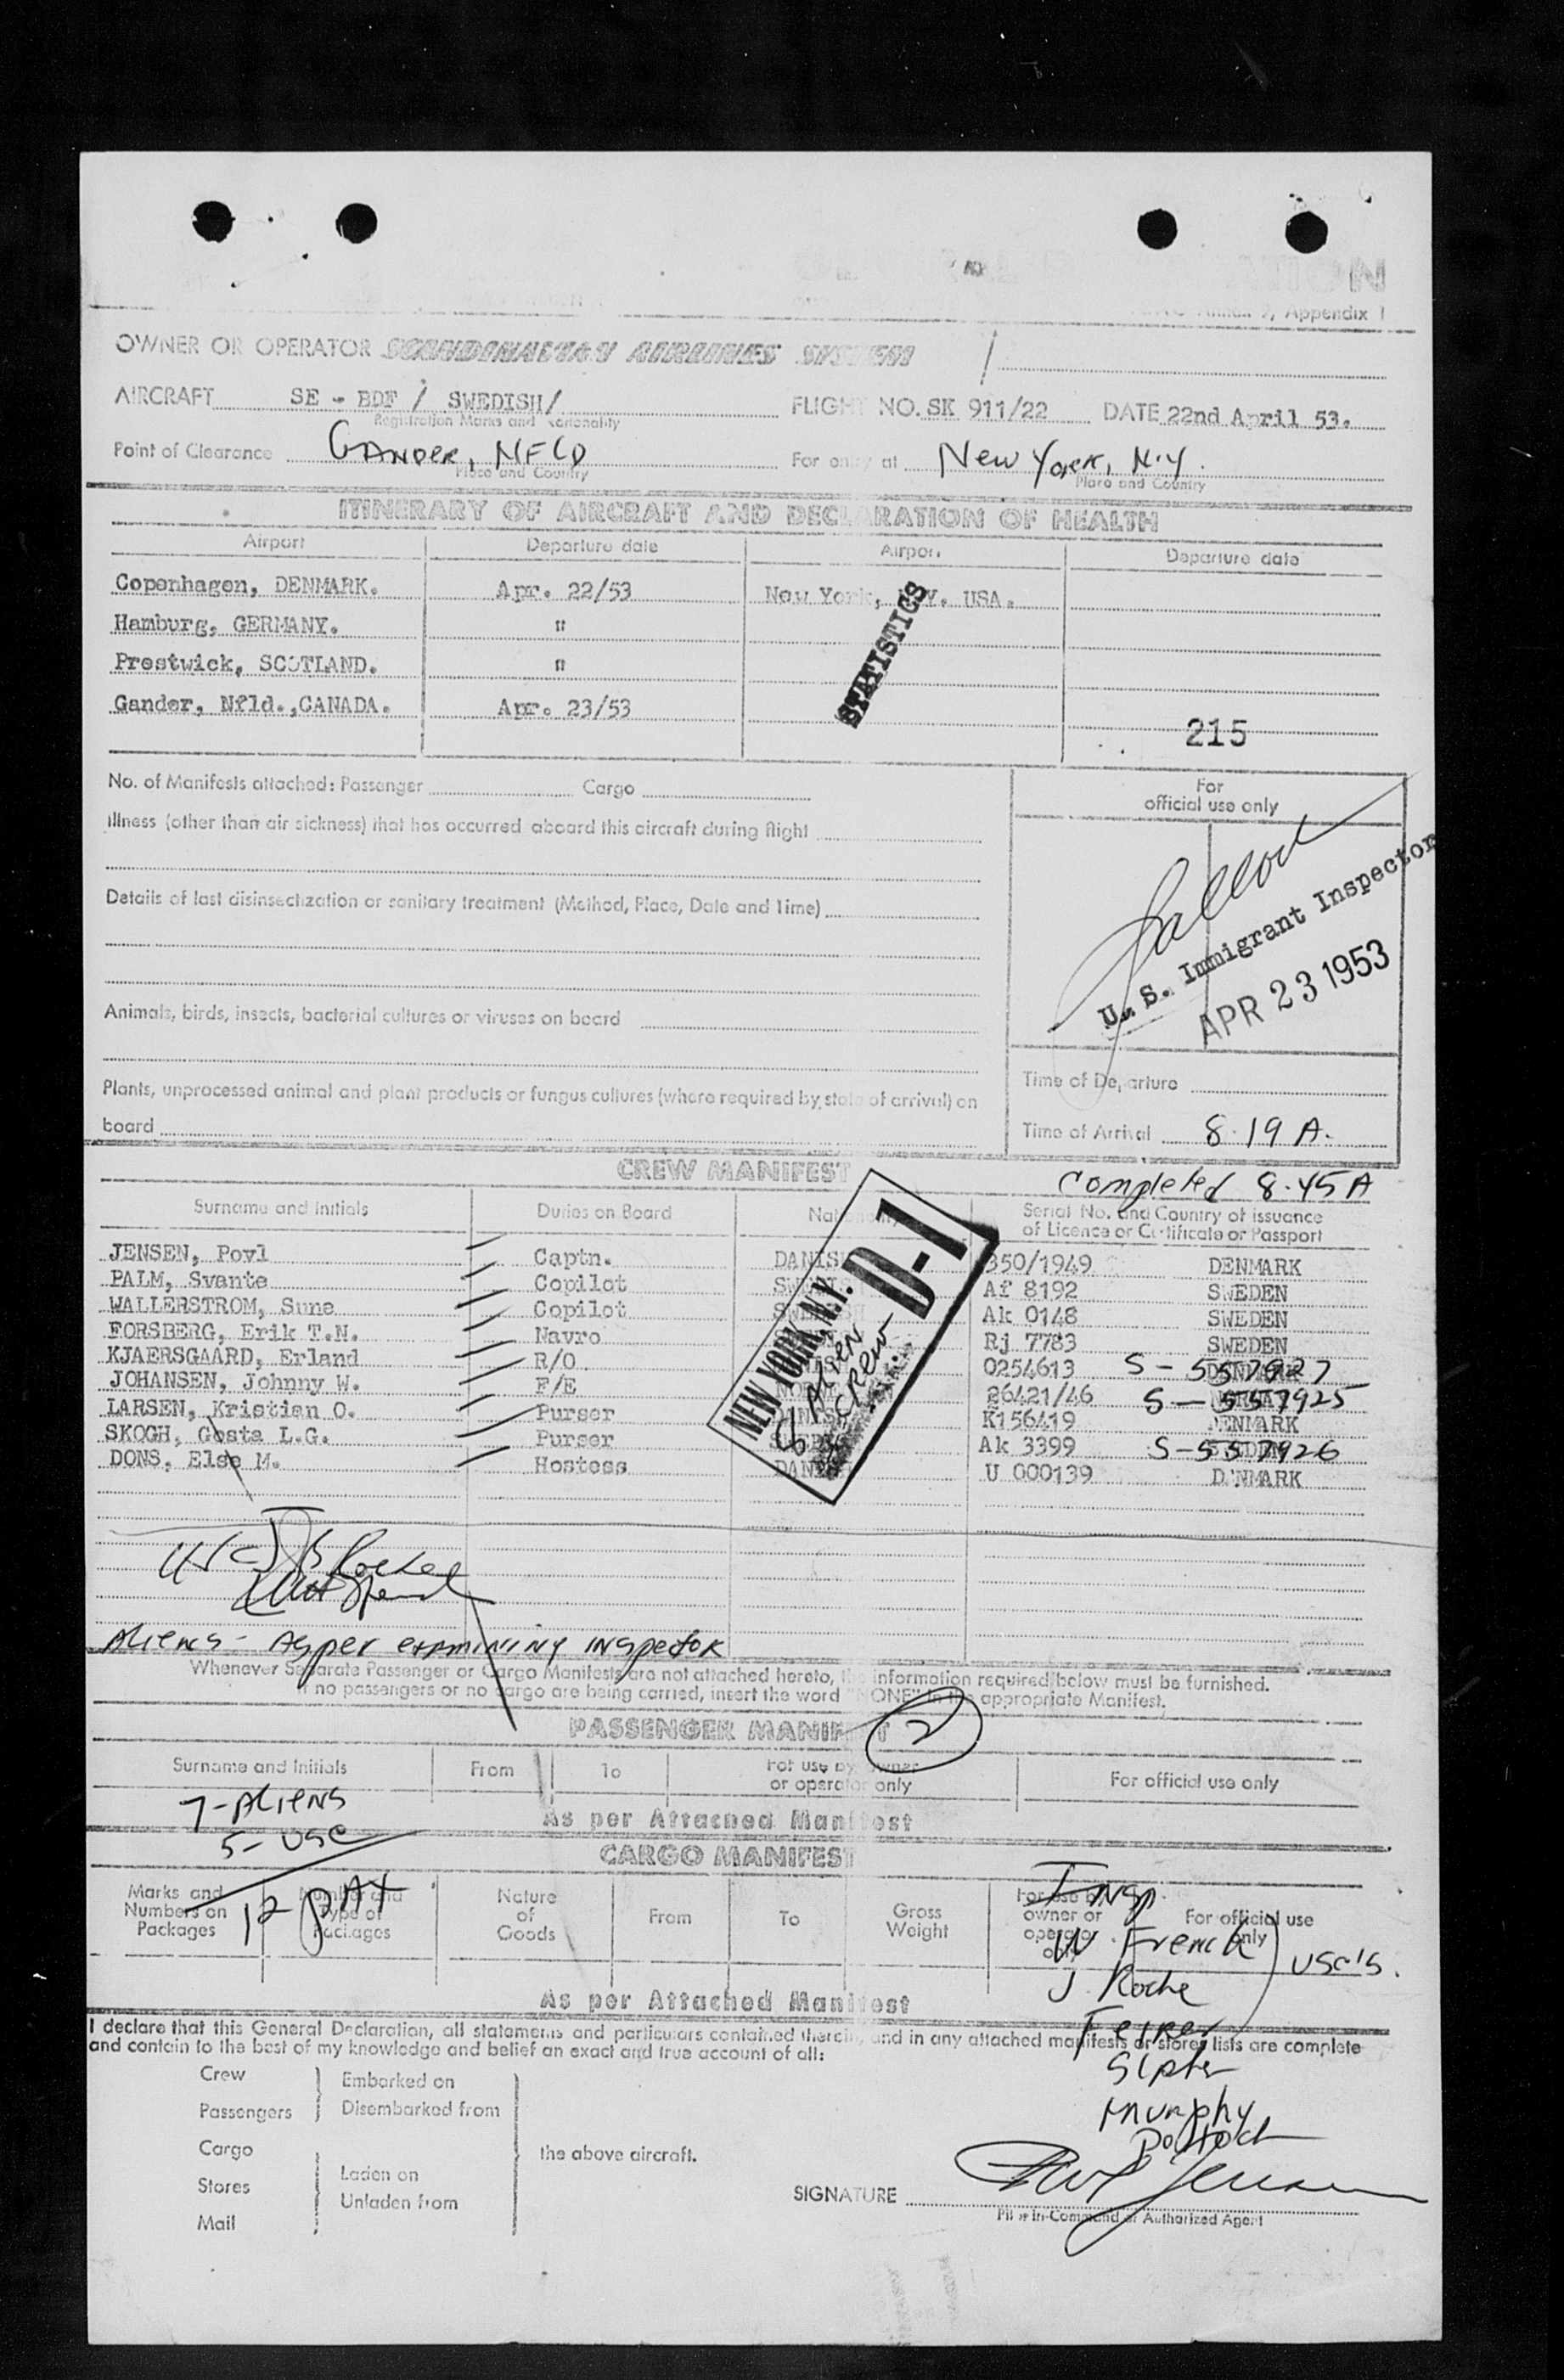 Annex 9, Appendix 1
OWNER OR OPERATOR SCANDINAVIAN AIRLINES SYSTEM
AIRCRAFT SE - BDF / SWEDISH/ FLIGHT NO. SK 911/22 DATE 22nd April 53.
Registration Marks and Nationality
Point of Clearance GANDER, NFLD For entry at New York, N.Y.
Place and Country Place and Country
ITINERARY OF AIRCRAFT AND DECLARATION OF HEALTH
Airport Departure date Airport Departure date
Copenhagen, DENMARK. Apr. 22/53 New York, N.Y. USA.
Hamburg, GERMANY. "
Prestwick, SCOTLAND. "
Gander, Nfld.,CANADA. Apr. 23/53
STATISTICS
215
No. of Manifests attached: Passenger Cargo
For
official use only
Illness (other than air sickness) that has occurred aboard this aircraft during flight
Details of last disinsectization or sanitary treatment (Method, Place, Date and Time)
U. S. Immigrant Inspector
APR 23 1953
Animals, birds, insects, bacterial cultures or viruses on board
Plants, unprocessed animal and plant products or fungus cultures (where required by state of arrival) on
board
Time of Departure
Time of Arrival 8.19 A.
CREW MANIFEST
Completed 8.45 A
Surname and Initials Duties on Board Nationality Serial No. and Country of issuance
of Licence or Certificate or Passport
JENSEN, Povl Captn. DANISH 350/1949 DENMARK
PALM, Svante Copilot SWEDISH Af 8192 SWEDEN
WALLERSTROM, Sune Copilot SWEDISH Ak 0148 SWEDEN
FORSBERG, Erik T.N. Navro Rj 7783 SWEDEN
KJAERSGAARD, Erland R/O 0254613 S-557927
JOHANSEN, Johnny W. F/E 26421/46 S-557925
LARSEN, Kristian O. Purser DANISH K156419 DENMARK
SKOGH, Gosta L.G. Purser SWEDISH Ak 3399 S-557926
DONS, Else M. Hostess DANISH U 000139 DENMARK
NEW YORK, N.Y. D-1
9 Alien
crew
Aliens - As per examining inspector
Whenever Separate Passenger or Cargo Manifests are not attached hereto, the information required below must be furnished.
If no passengers or no cargo are being carried, insert the word "NONE" in the appropriate Manifest.
PASSENGER MANIFEST
2
Surname and Initials From To For use by owner
or operator only For official use only
7-Aliens
5-USC
As per Attached Manifest
CARGO MANIFEST
12 PAX
Marks and
Numbers on
Packages Number and
Type of
Packages Nature
of
Goods From To Gross
Weight For use by
owner or
operator
only For official use
only
Insp.
W. French
J. Roche
USC's.
As per Attached Manifest
I declare that this General Declaration, all statements and particulars contained therein, and in any attached manifests or stores lists are complete
and contain to the best of my knowledge and belief an exact and true account of all:
Murphy
Crew Embarked on
Passengers Disembarked from
Cargo
the above aircraft.
Stores Laden on
Unladen from
Mail
SIGNATURE Povl Jensen
Pilot in-Command or Authorized Agent